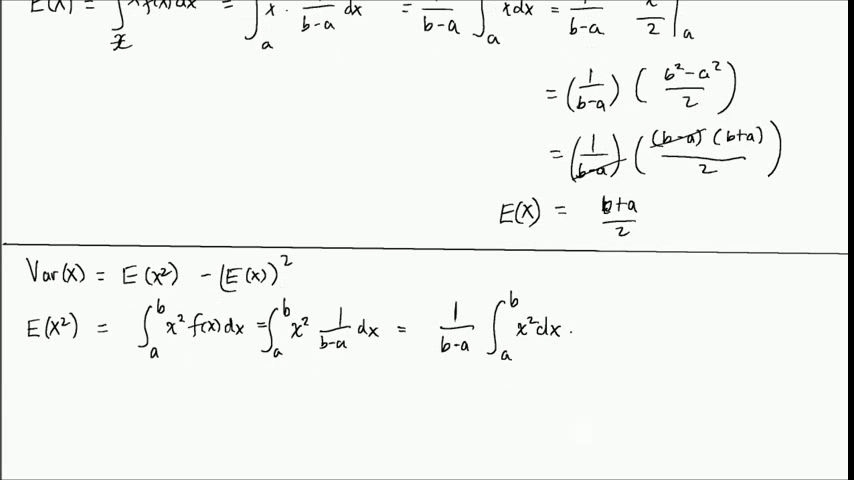 E(X) = ∫_x x f(x) dx = ∫_a x · 1/(b-a) dx = 1/(b-a) ∫_a x dx = 1/(b-a) x/2 |_a
= (1/(b-a)) ((b²-a²)/2)
= (1/(b-a)) ((b-a)(b+a)/2)
E(X) = (b+a)/2
Var(X) = E(X²) - (E(X))²
E(X²) = ∫_a^b x² f(x) dx = ∫_a^b x² 1/(b-a) dx = 1/(b-a) ∫_a^b x² dx .